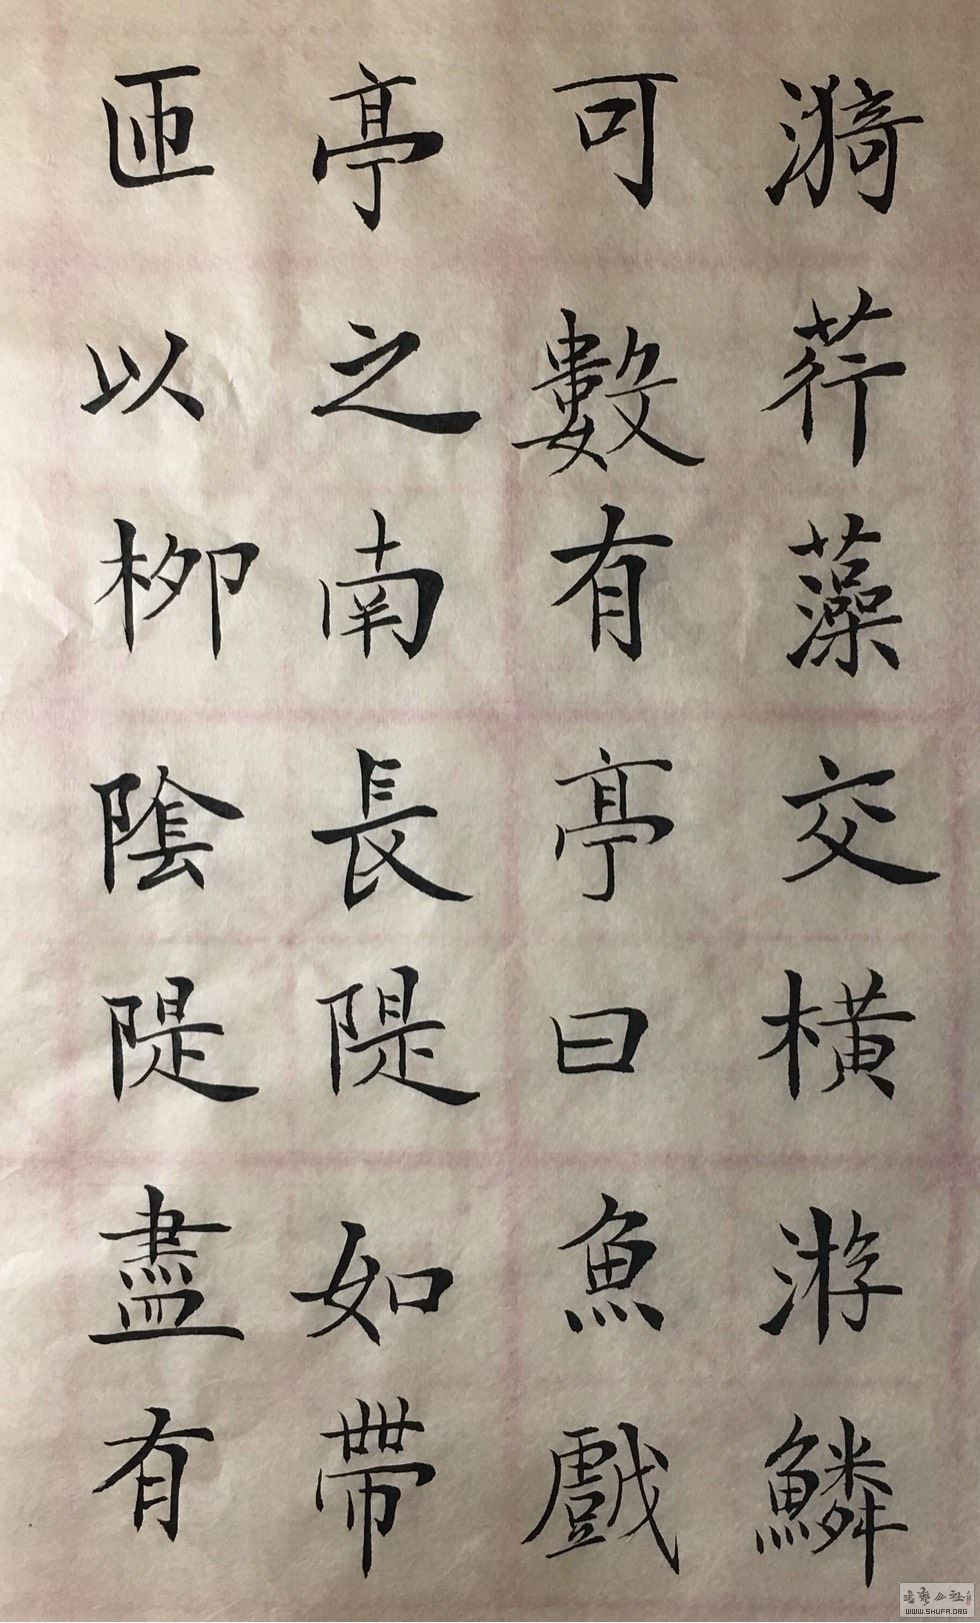 漪荇藻交橫游鱗
可數有亭曰魚戲
亭之南長隄如帶
匝以柳陰隄盡有
WWW.SHUFA.ORG